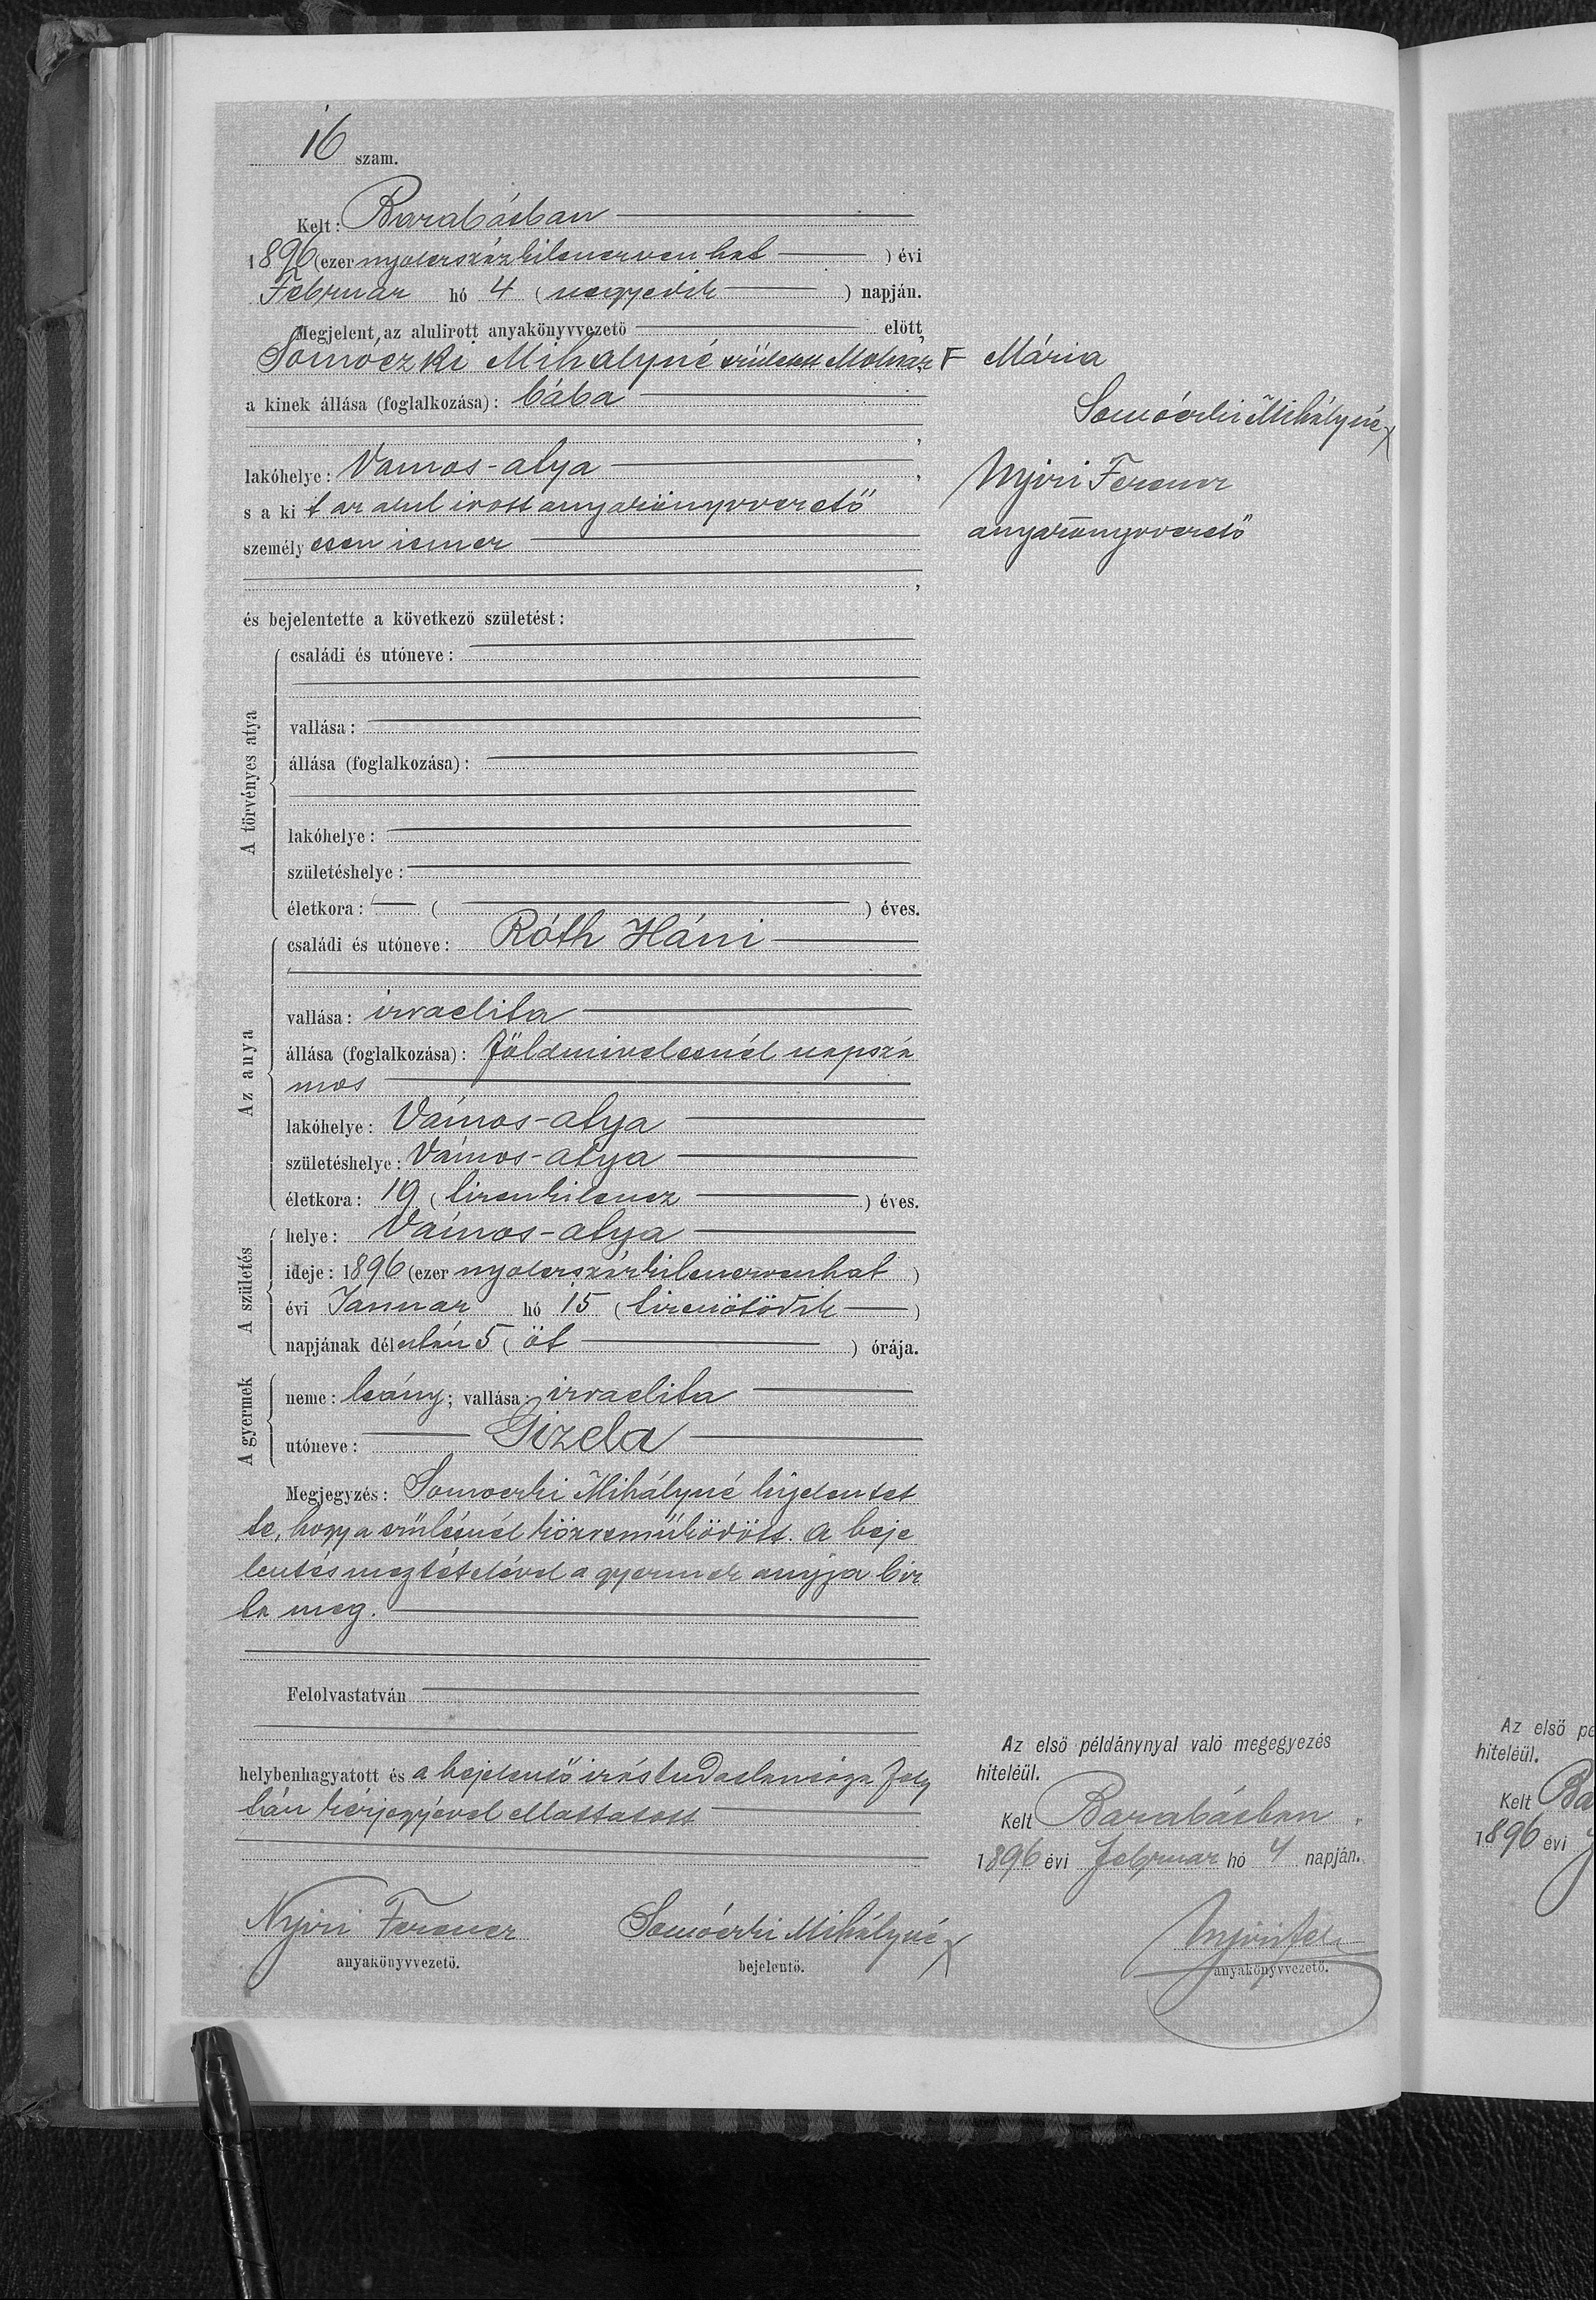 16 szam.
Kelt: Barabásban
1896 (ezer nyolczszázkilenczvenhat ) évi
Februar hó 4 ( negyedik ) napján.
Megjelent az alulirott anyakönyvvezető előtt
Somóczki Mihályné született Molnár F Mária
a kinek állása (foglalkozása): bába
Somóczki Mihályné x
lakóhelye: Vámos-atya ,
Nyiri Ferencz
s a kit az alul irott anyakönyvvezető
anyakönyvvezető
személyesen ismer
,
és bejelentette a következő születést:
A törvényes atya
családi és utóneve:
vallása:
állása (foglalkozása):
lakóhelye:
születéshelye:
életkora: ( ) éves.
Az anya
családi és utóneve: Róth Háni
vallása: izraelita
állása (foglalkozása): földmivelesnél napszá
mos
lakóhelye: Vámos-atya
születéshelye: Vámos-atya
életkora: 19 ( tizenkilencz ) éves.
A születés
helye: Vámos-atya
ideje: 1896 (ezer nyolczszázkilenczvenhat )
évi Januar hó 15 ( tizenötödik )
napjának délután 5 ( öt ) órája.
A gyermek
neme: leány; vallása: izraelita
utóneve: Gizela
Megjegyzés: Somoczki Mihályné kijelentet
te, hogy a szülésnél közreműködött. A beje
lentés megtételével a gyermek anyja biz
ta meg.
Felolvastatván
helybenhagyatott és a bejelentő irástudatlansága foly
tán kézjegyével ellattatott
Nyiri Ferencz
anyakönyvvezető.
Somóczki Mihályné x
bejelentő.
Az első példánynyal való megegyezés
hiteléül.
Kelt Barabásban
1896 évi Februar hó 4 napján.
Nyiri Fer
anyakönyvvezető.
Az első pé
hiteléül.
Kelt Ba
1896 évi